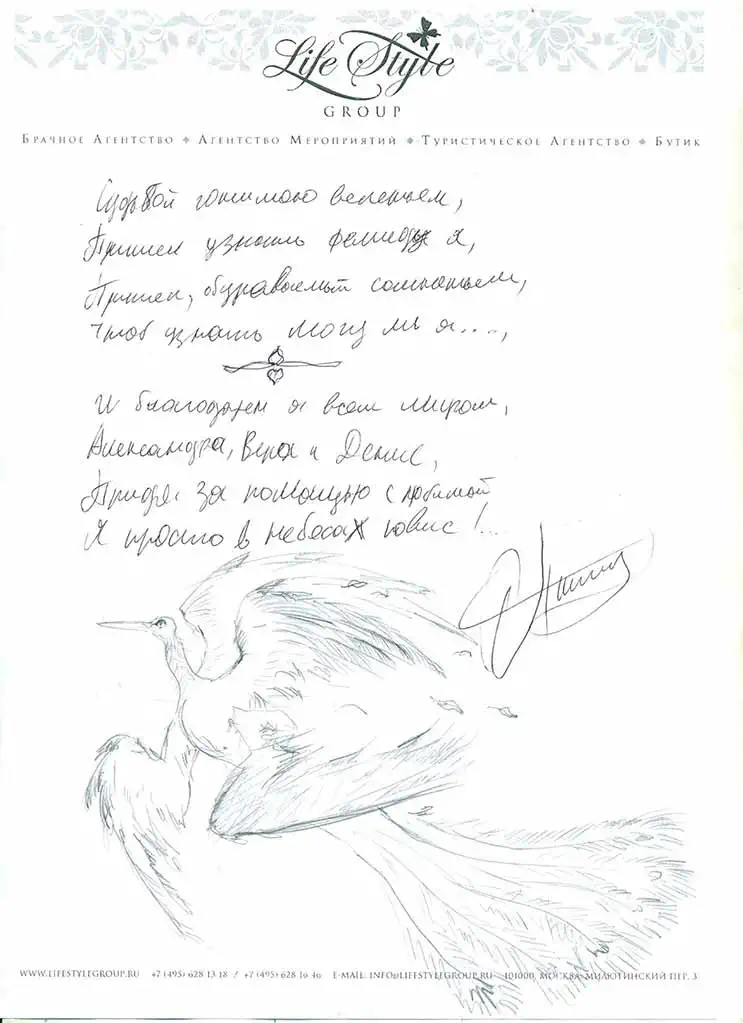 Life Style
GROUP
Брачное Агентство ◆ Агентство Мероприятий ◆ Туристическое Агентство ◆ Бутик
Судьбой гонимою веленьем,
Пришел узнать я,
Пришел, обуреваемый сомненьем,
Чтоб узнать могу ли я....,
И благодарен я всем миром,
Александра, Вера и Денис,
Придя за помощью с любимой
Я просто в небесах повис!...
WWW.LIFESTYLEGROUP.RU +7 (495) 628 13 18 / +7 (495) 628 16 46 E-MAIL: INFO@LIFESTYLEGROUP.RU 101000, МОСКВА МИЛЮТИНСКИЙ ПЕР. 3